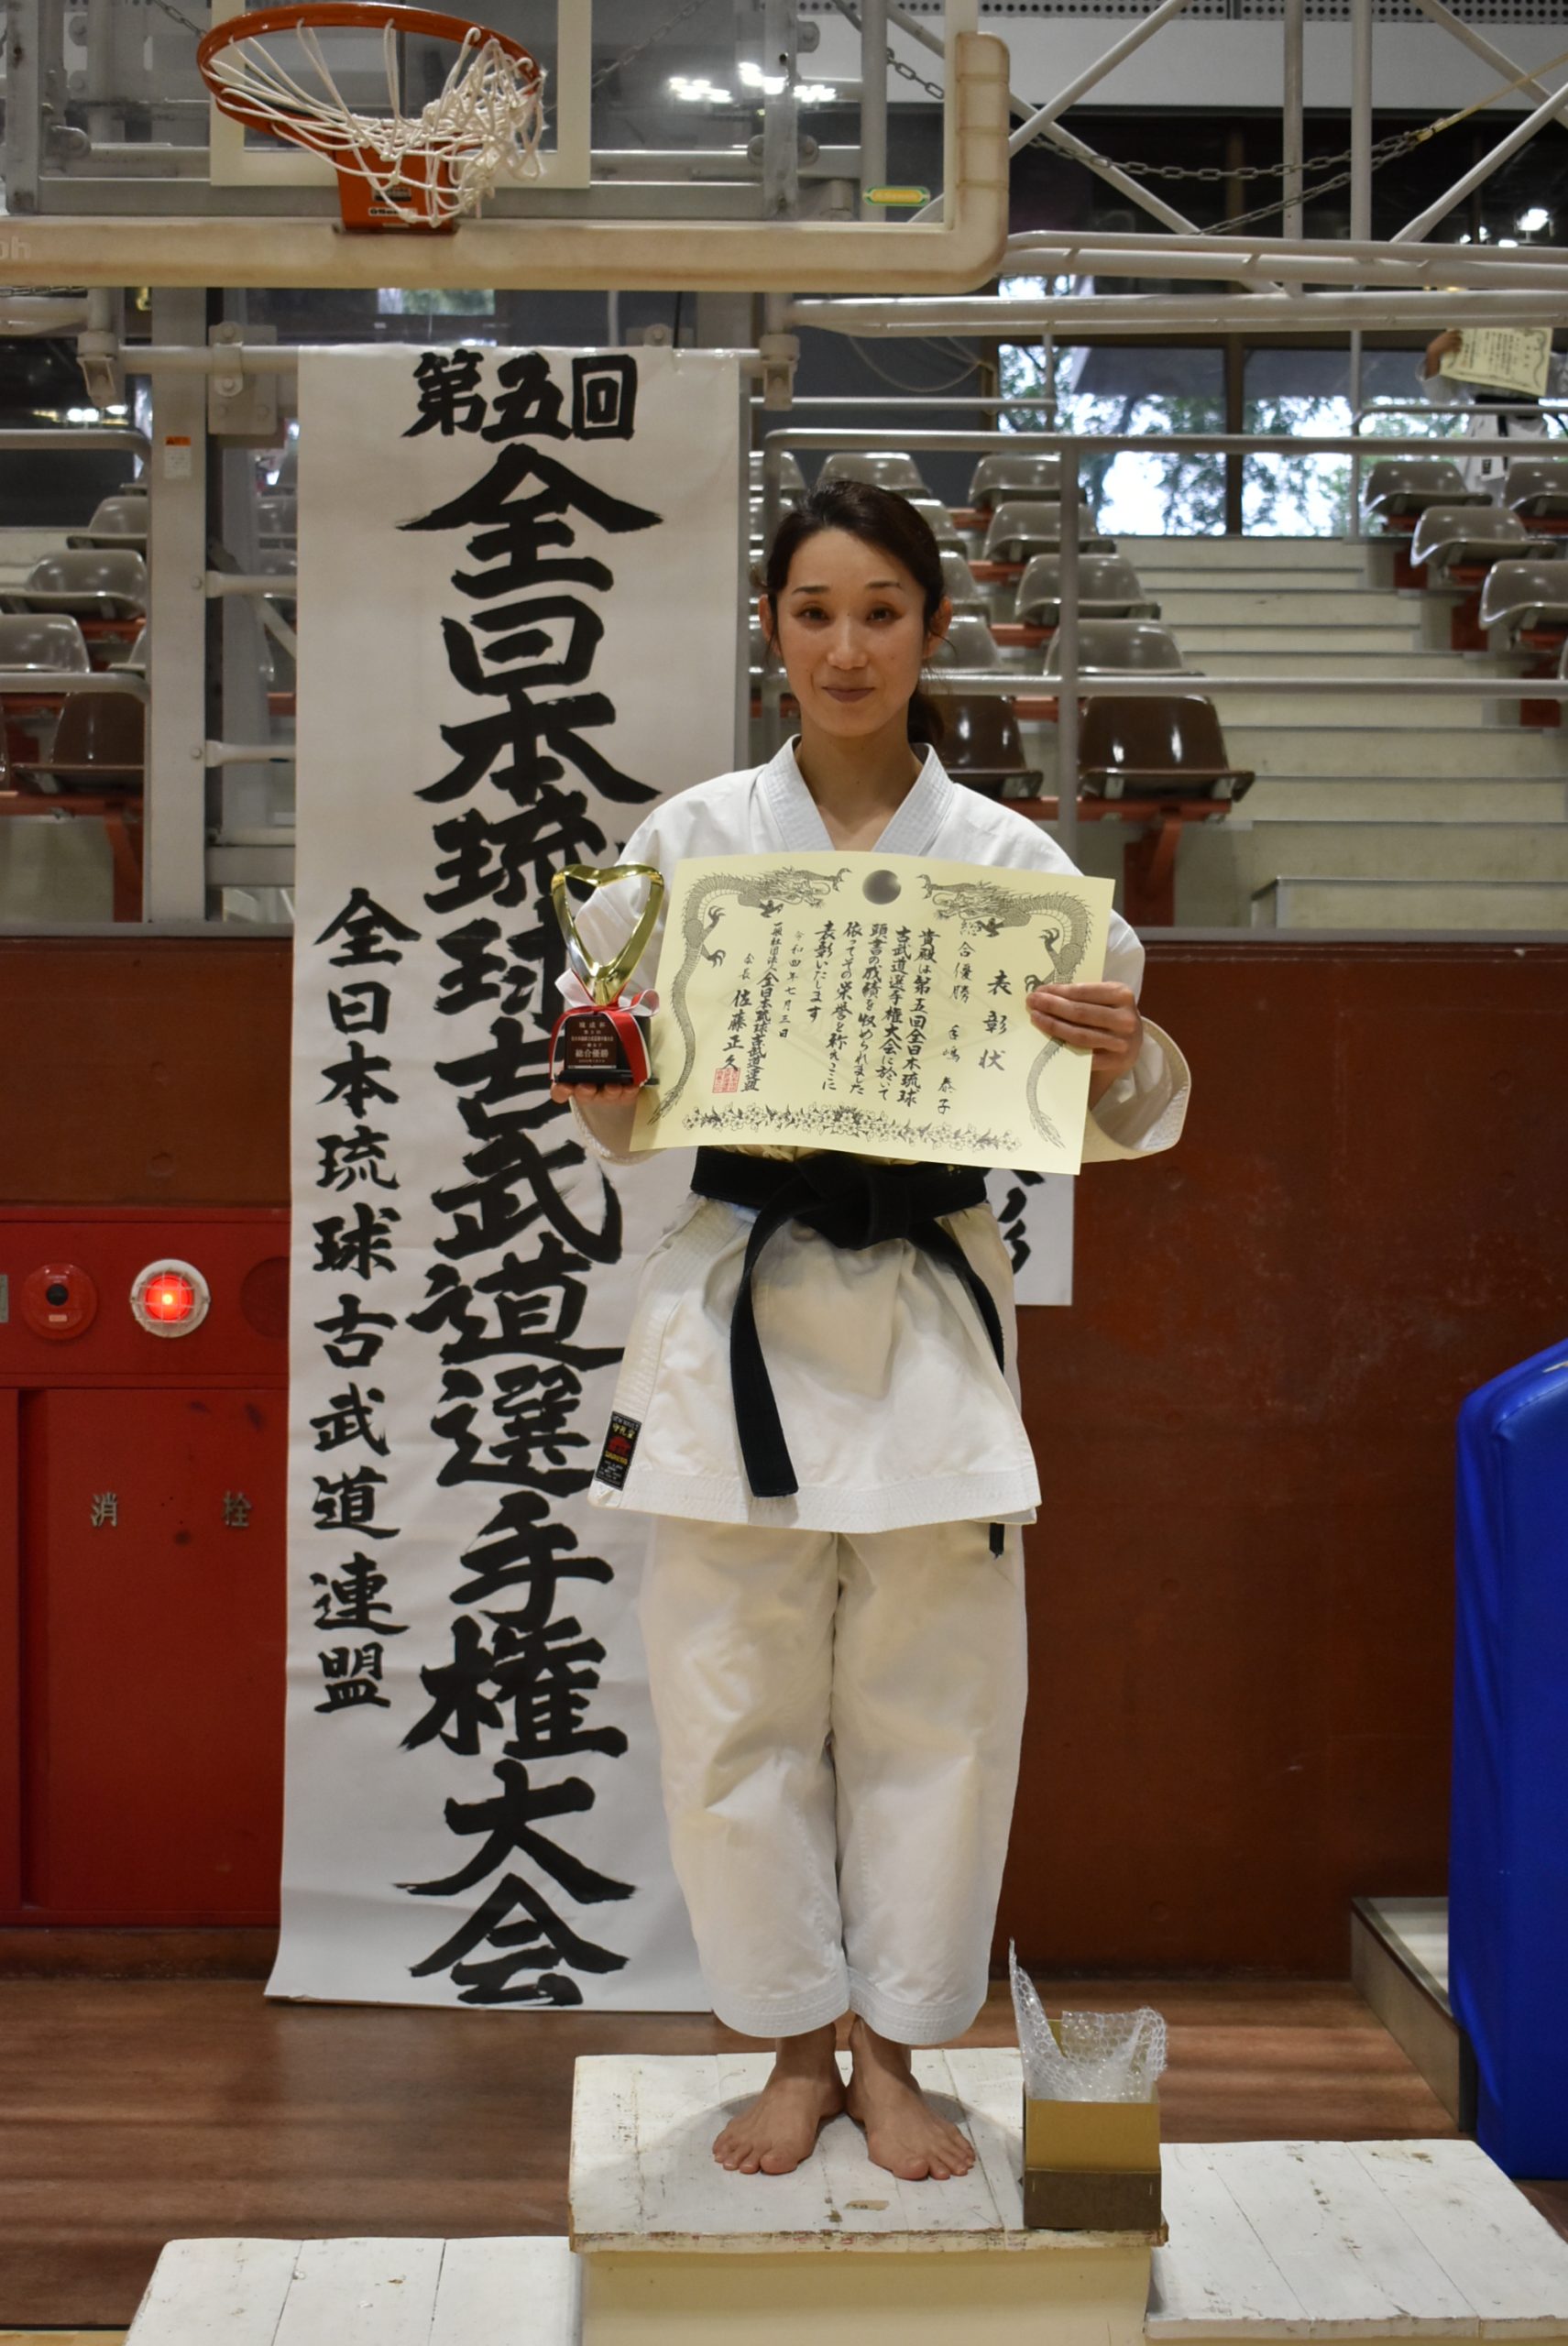 第五回
全日本琉球古武道選手権大会
全日本琉球古武道連盟
表彰状
総合優勝
手嶋 泰子
貴殿は第五回全日本琉球
古武道選手権大会に於いて
頭書の成績を収められました
依ってその栄誉を称えここに
表彰いたします
令和四年七月三日
一般社団法人全日本琉球古武道連盟
会長 佐藤正久
総合優勝
消 栓